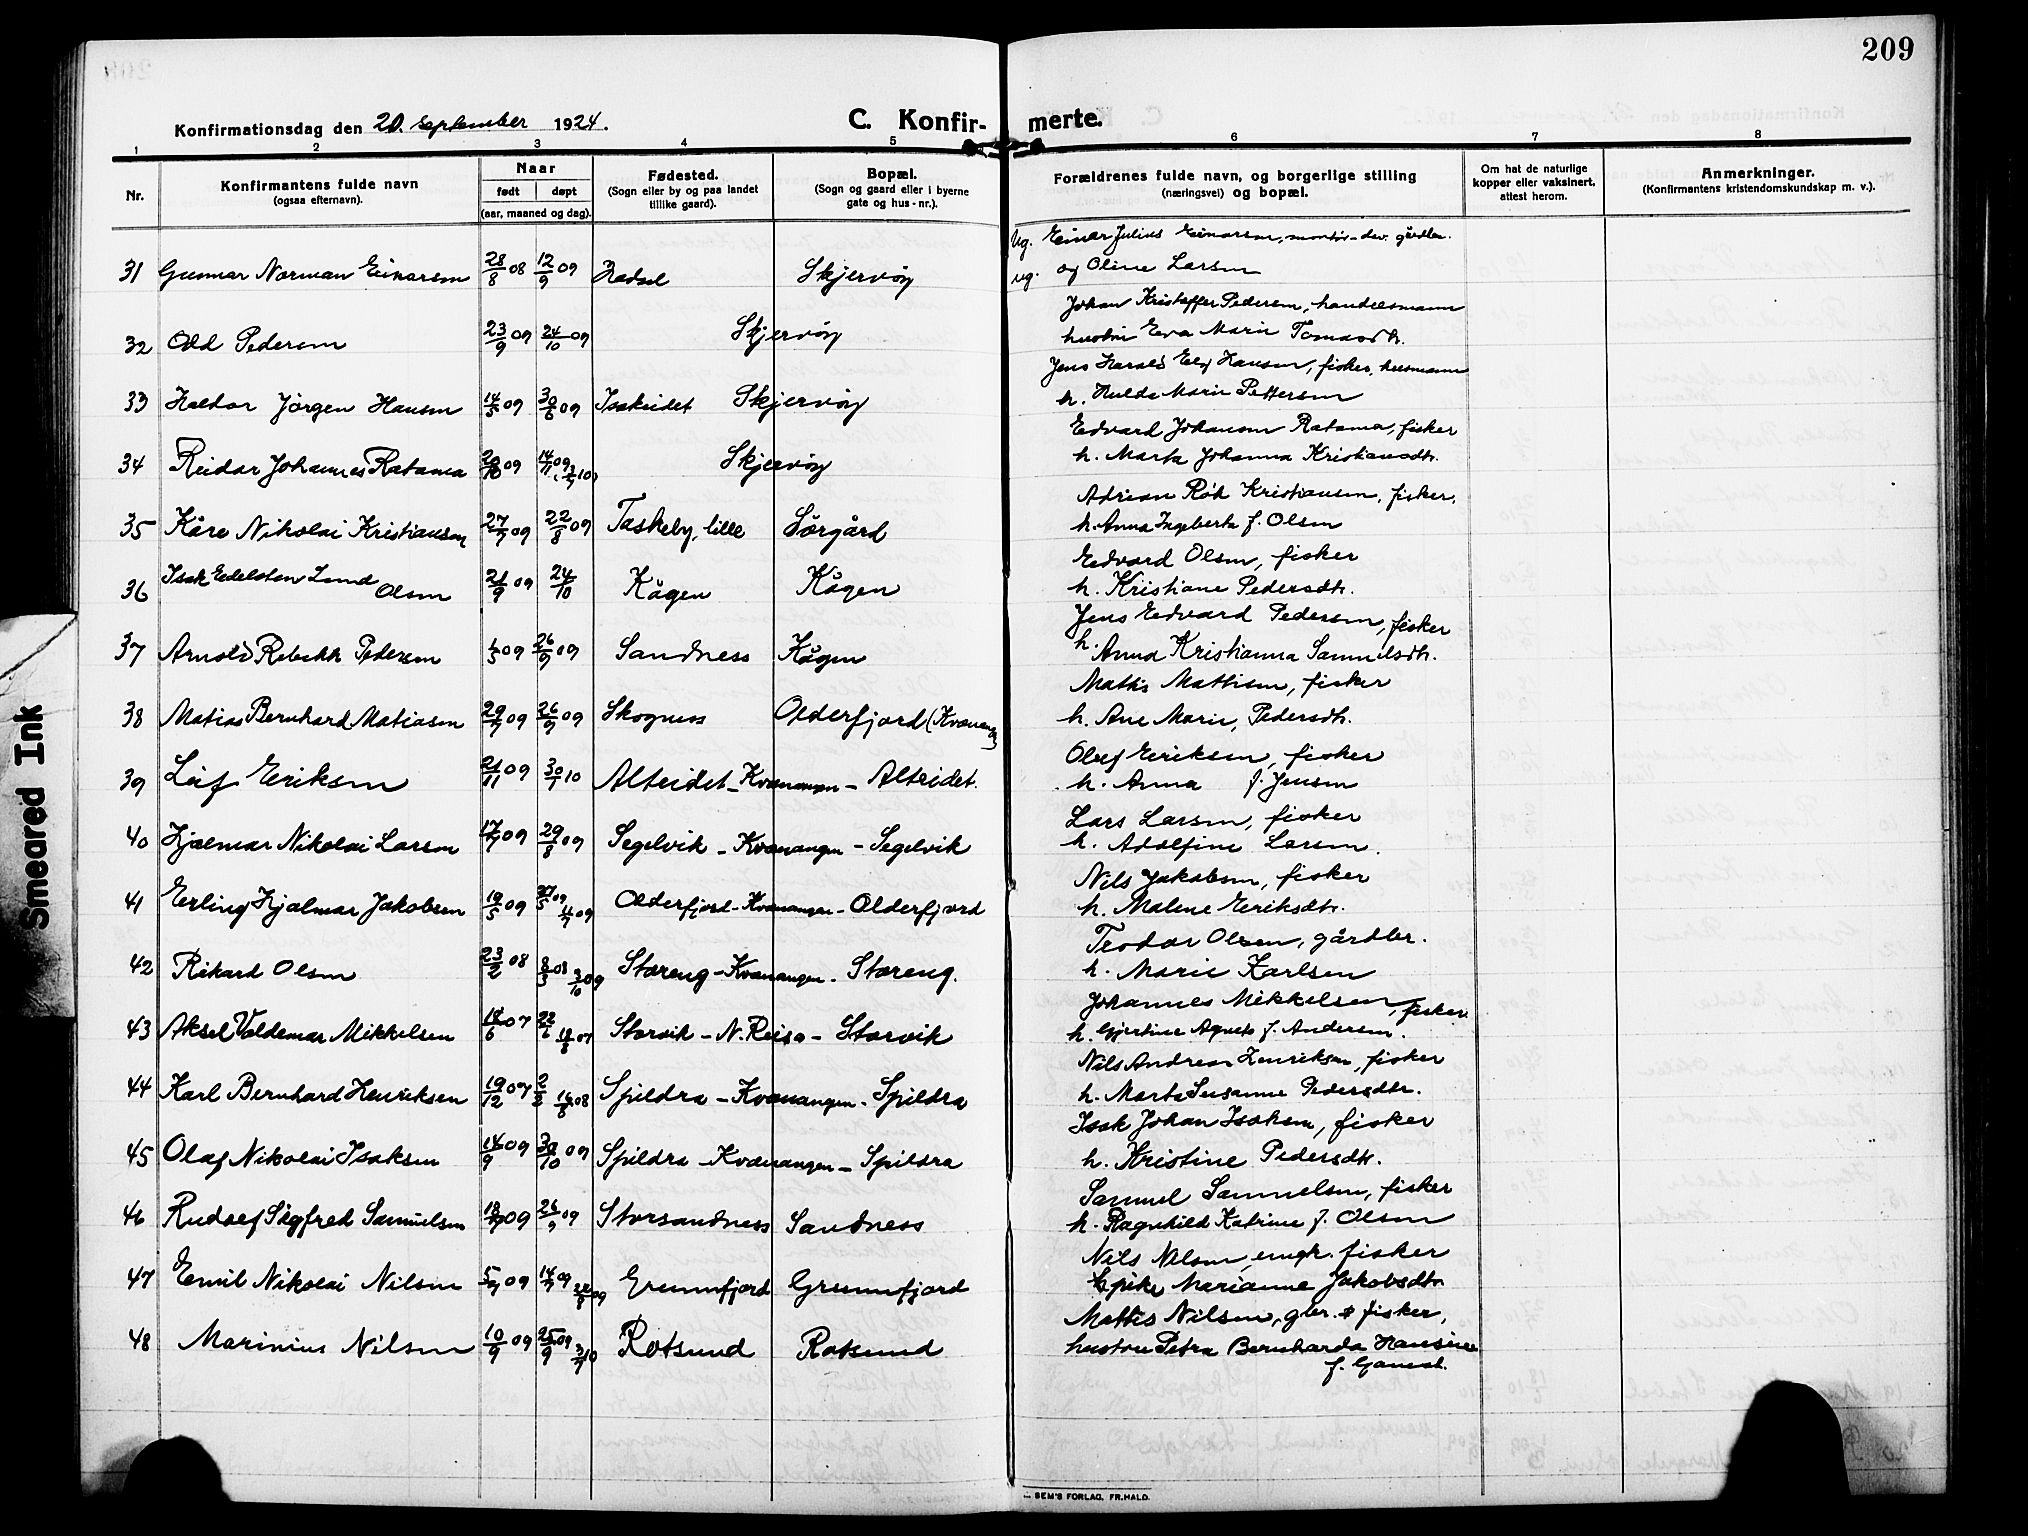 209
Konfirmationsdag den 20. september 1924.
C. Konfir- merte.
1 2 3 4 5 6 7 8
Nr.
Konfirmantens fulde navn
(ogsaa efternavn).
Naar
født døpt
(aar, maaned og dag).
Fødested.
(Sogn eller by og paa landet
tillike gaard).
Bopæl.
(Sogn og gaard eller i byerne
gate og hus-nr.).
Forældrenes fulde navn, og borgerlige stilling
(næringsvei) og bopæl.
Om hat de naturlige
kopper eller vaksinert,
attest herom.
Anmerkninger.
(Konfirmantens kristendomskundskap m. v.).
Ug. Einar Julius Einarsen,
31 Gunnar Norman Einarsen 28/8 08 12/9 09 Hadsel Skjervöy ug. og Oline Larsen
Johan Kristoffer Pedersen, handelsmann
32 Odd Pedersen 23/9 09 24/10 09 Skjervöy hustru Eva Marie Tomasdtr.
Jens Harald Hansen, fisker,
33 Haldor Jörgen Hansen 14/5 09 30/6 09 Isakeidet Skjervöy h. Hulda Marie Pettersen
Edvard Johansen Ratama, fisker
34 Reidar Johannes Ratama 20/10 09 14/11 09 Skjervöy h. Marta Johanna Kristiansdtr.
Adrian Rök Kristiansen, fisker.
35 Kåre Nikolai Kristiansen 27/7 09 22/8 09 Taskeby, lille Sörgård h. Anna Ingeberta f. Olsen
Edvard Olsen, fisker
36 Isak Edelsten Lund Olsen 21/9 09 24/10 Kågen Kågen h. Kristiane Pedersdtr.
Jens Edvard Pedersen, fisker
37 Arnold Rebekk Pedersen 1/5 09 26/9 09 Sandness Kågen h. Anna Kristianna Samuelsdtr.
Mattis Mattisen, fisker
38 Matias Bernhard Matiasen 29/7 09 26/9 09 Skogness Olderfjord (Kvænangen) h. Ane Marie, Pedersdtr.
Oluf Eriksen, fisker
39 Leif Eriksen 21/11 09 30/1 10 Alteidet - Kvænangen - Alteidet. h. Anna f. Jensen
Lars Larsen, fisker
40 Hjalmar Nikolai Larsen 17/7 09 29/8 09 Segelvik - Kvænangen - Segelvik h. Adolfine Larsen.
Nils Jakobsen, fisker
41 Erling Hjalmar Jakobsen 19/5 09 27/5 09 4/7 09 Olderfjord - Kvænangen - Olderfjord h. Malene Eriksdtr.
Teodor Olsen, gårdbr.
42 Rikard Olsen 23/2 08 8/3 08 3/10 09 Storeng - Kvænangen - Storeng. h. Marie Karlsen
Johannes Mikkelsen, fisker
43 Aksel Valdemar Mikkelsen 18/6 07 22/6 18/8 07 Storvik - N. Reisa - Storvik h. Gjertine Agnete f. Andersen.
Nils Andreas Henriksen, fisker
44 Karl Bernhard Henriksen 19/12 07 2/2 16/8 08 Spildra - Kvænangen - Spildra h. Marta Susanne Pedersdtr.
Isak Johan Isaksen, fisker
45 Olaf Nikolai Isaksen 14/9 09 30/10 09 Spildra - Kvænangen - Spildra h. Kristine Pedersdtr.
Samuel Samuelsen, fisker
46 Rudolf Sigfred Samuelsen 18/7 09 26/9 09 Storsandness Sandness h. Ragnhild Katrine f. Olsen
Nils Nilsen, ungk. fisker
47 Emil Nikolai Nilsen 5/7 09 14/7 09 22/8 09 Grunnfjord Grunnfjord & pike Marianne Jakobsdtr.
Mattis Nilsen, gbr. & fisker,
48 Marinius Nilsen 10/9 09 25/9 09 3/7 10 Rotsund Rotsund hustru Petra Bernharda Hansine
f. Gamst.
SEM'S FORLAG, FR.HALD.
Smeared Ink